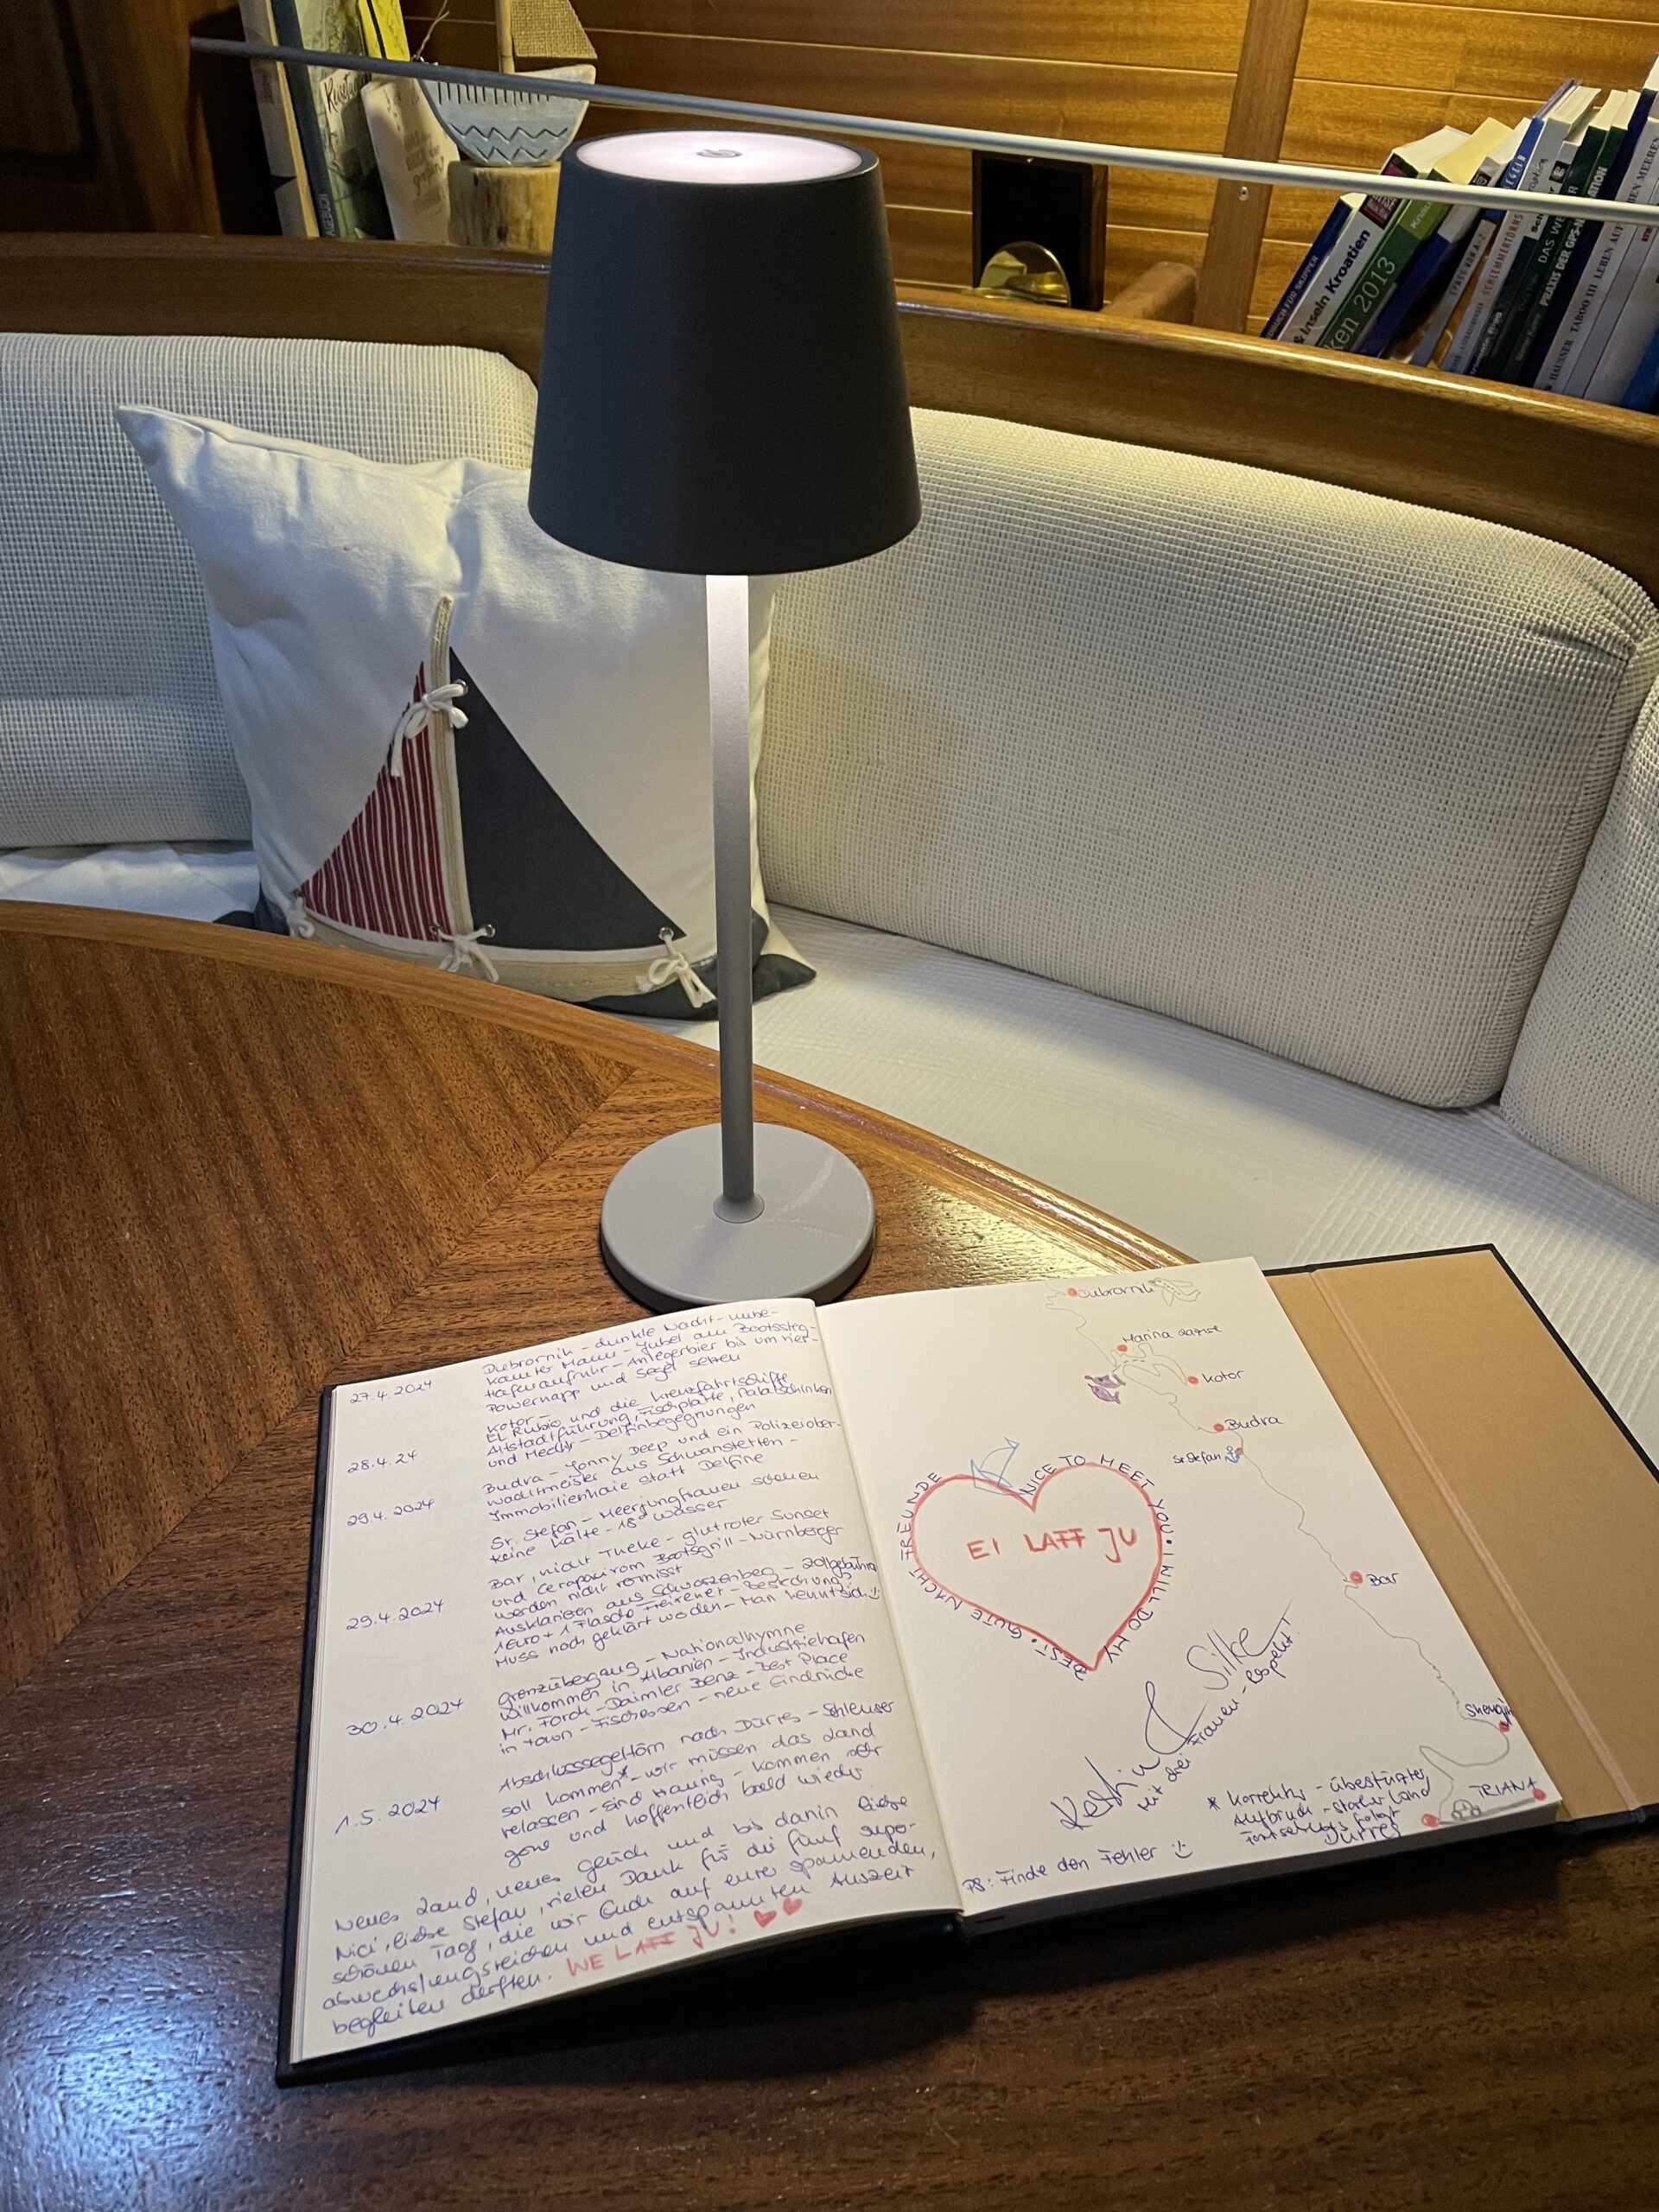 Küsten
KROATIEN
& Inseln Kroatien
ken 2013
SCHLEMMERTÖRNS
DAS WE
PRAXIS DER GPS-N
HAUSNER TABOO III LEBEN AUF
EN MEEREN
27.4.2024
Dubrovnik - dunkle Nacht - unbe-
kannter Mann - Jubel am Bootssteg -
Hafenaufruhr - Anlegerbier bis um vier -
Powernapp und Segel setzen
28.4.24
Kotor -
EL Rubio und die Kreuzfahrtschiffe
Altstadtführung, Fischplatte, Palatschinken
und Meehr - Delfinbegegnungen
29.4.2024
Budva - Jonny Deep und ein Polizeiober-
wachtmeister aus Schwanstetten -
Immobilienhaie statt Delfine
Sr. Stefan - Meerjungfrauen scheuen
keine Kälte - 18° Wasser
29.4.2024
Bar, nicht Theke - glutroter Sunset
und Cevapcici vom Bootsgrill - Nürnberger
werden nicht vermisst
Ausklarieren aus Schwarzenberg - Zollgebühren
1 Euro + 1 Flasche Freixenet - Bestechung?
Muss noch geklärt werden - Man kennt sich :)
30.4.2024
Grenzübergang - Nationalhymne
Willkommen in Albanien - Industriehafen
Mr. Ford - Daimler Benz - Best Place
in town - Fischessen - neue Eindrücke
1.5.2024
Abschlusssegeltörn nach Dürres - Schleuser
soll kommen* - wir müssen das Land
verlassen - sind traurig - kommen sehr
gerne und hoffentlich bald wieder
Neues Land, neues Glück und bis dahin liebe
Nici, lieber Stefan, vielen Dank für die fünf super-
schönen Tage, die wir Euch auf eurer spannenden,
abwechslungsreichen und entspannten Auszeit
begleiten durften. WE LAFF JU!
Dubrovnik
Marina
Kotor
Budva
St. Stefan
Bar
Shengjin
TRIANA
Dürres
NICE TO MEET YOU • I WILL DO MY BEST • GUTE NACHT FREUNDE
EI LAFF JU
Kerstin & Silke
Mit drei Frauen - Respekt!
* Korrektur - überstürzter
Aufbruch - starker Wind
Fortsetzung folgt
PS: Finde den Fehler :)